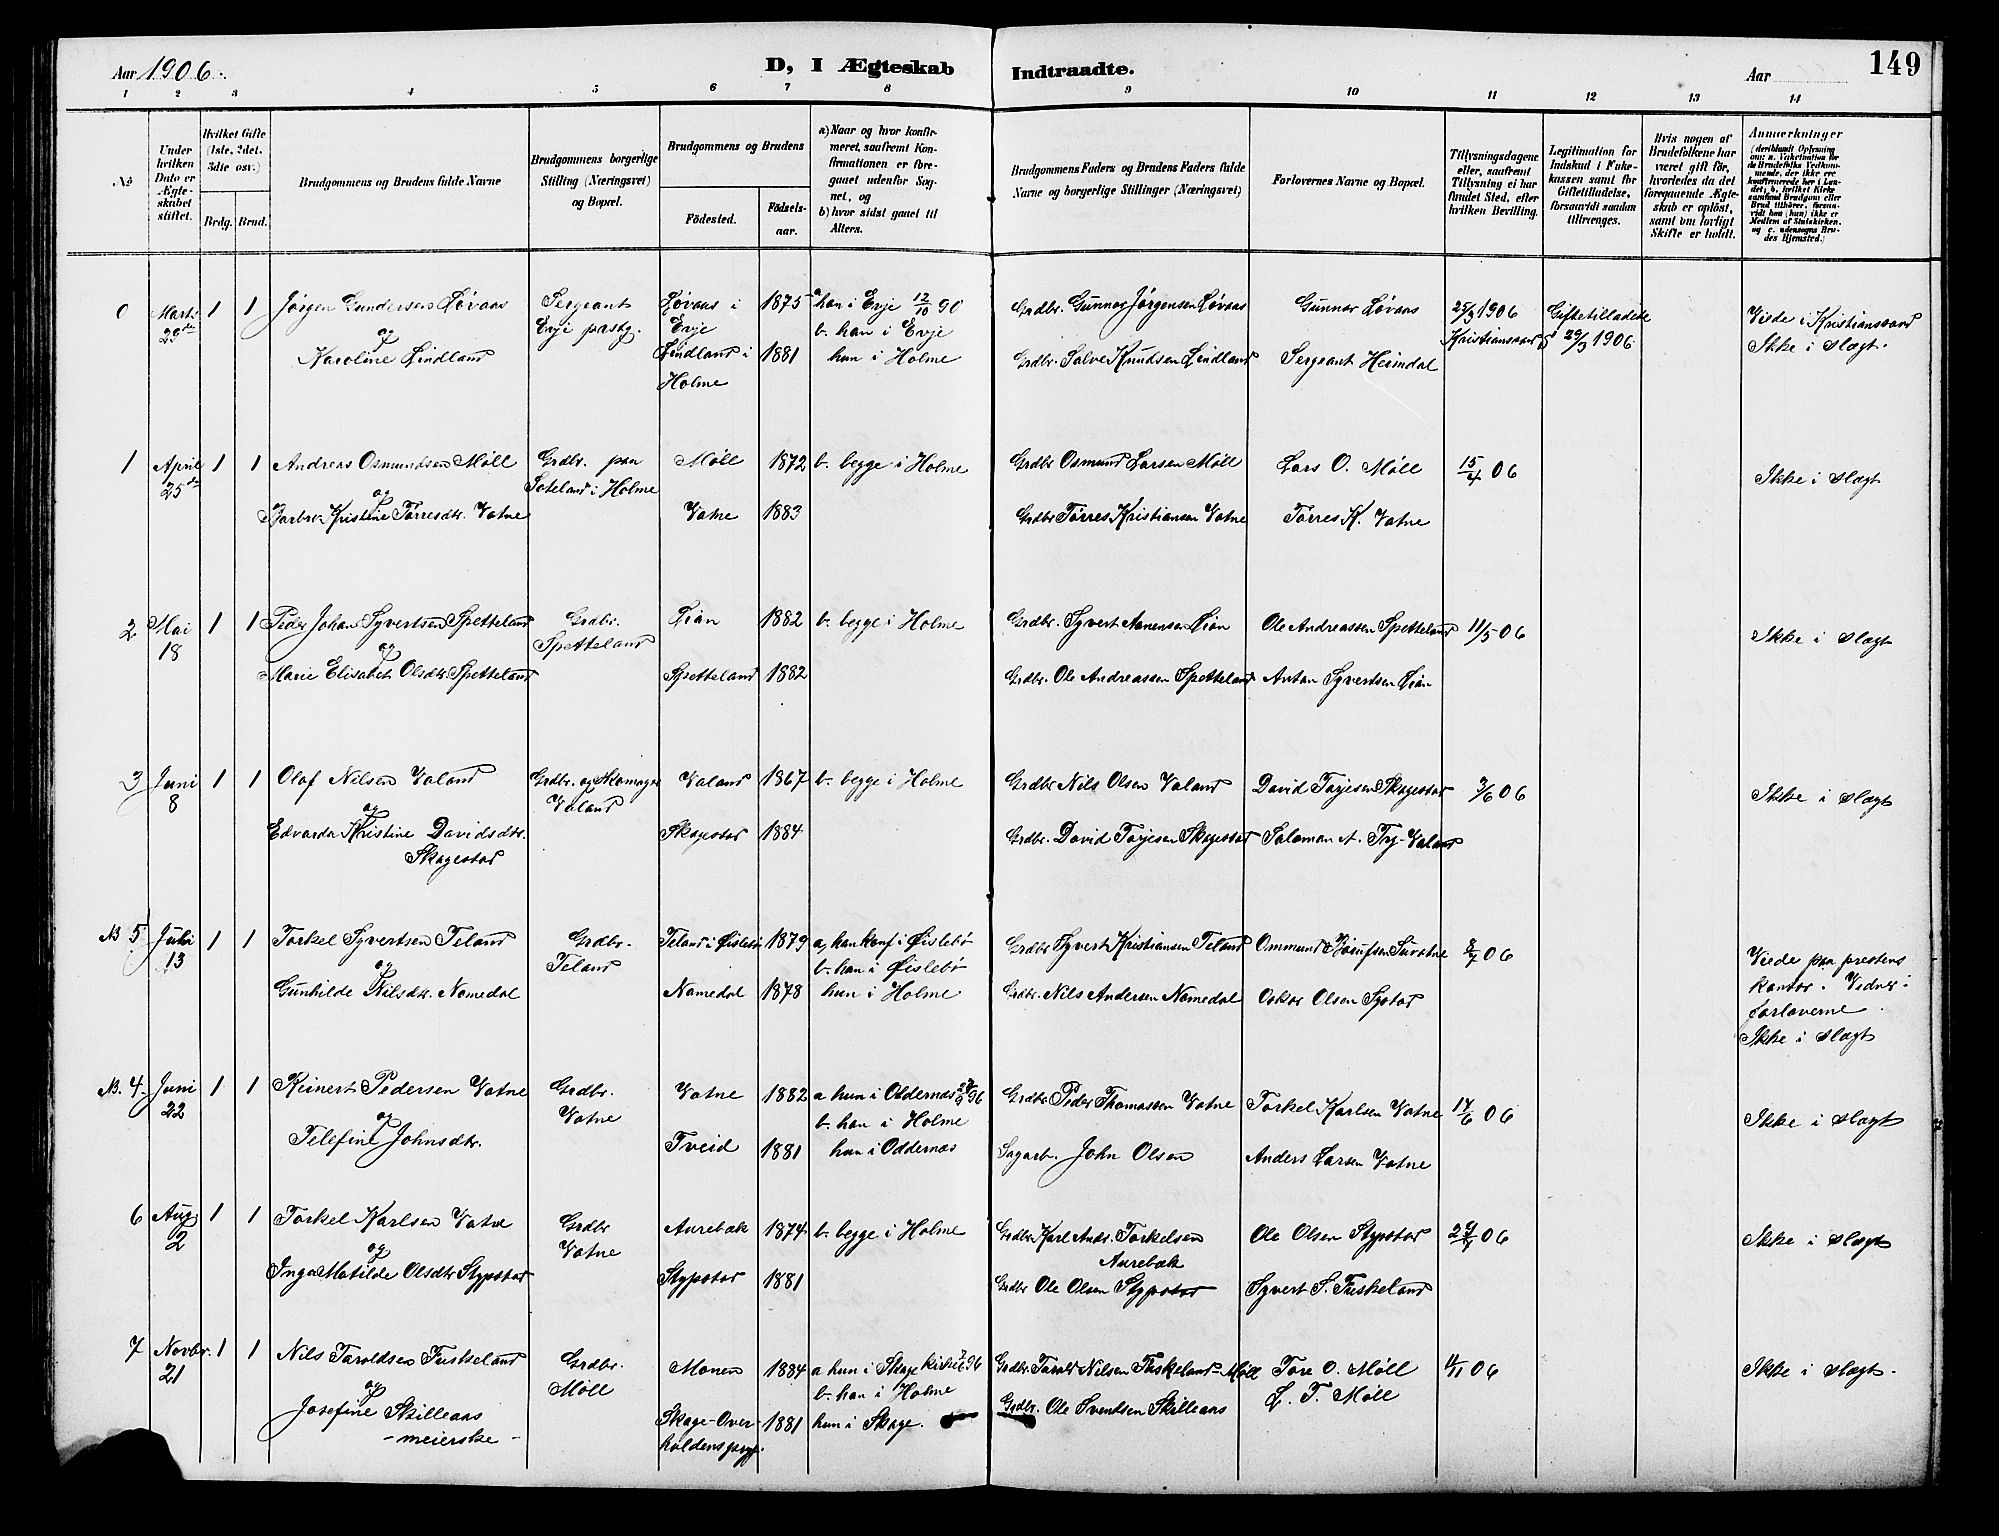 149
Aar 1906. D, I Ægteskab Indtraadte. Aar
1 2 3 4 5 6 7 8 9 10 11 12 13 14
No
Under hvilken Dato er Ægteskabet stiftet.
Hvilket Gifte (1ste, 2det, 3die osv.)
Brdg. Brud.
Brudgommens og Brudens fulde Navne
Brudgommens borgerlige Stilling (Næringsvei) og Bopæl.
Brudgommens og Brudens
Fødested. Fødselsaar.
a) Naar og hvor konfirmeret, saafremt Konfirmationen er foregaaet udenfor Sognet, og
b) hvor sidst gaaet til Alters.
Brudgommens Faders og Brudens Faders fulde Navne og borgerlige Stillinger (Næringsvei)
Forlovernes Navne og Bopæl.
Tillysningsdagene eller, saafremt Tillysning ei har fundet Sted, efter hvilken Bevilling.
Legitimation for Indskud i Enkekassen samt for Giftetilladelse, forsaavidt saadan tiltrænges.
Hvis nogen af Brudefolkene har været gift før, hvorledes da det foregaaende Ægteskab er opløst, samt om lovligt Skifte er holdt.
Anmærkninger
(deriblandt Oplysning om: a. Vakcination for de Brudefolks Vedkommende, der ikke ere konfirmerede her i Landet; b. hvilket Kirkesamfund Brudgom eller Brud tilhører, forsaavidt han (hun) ikke er Medlem af Statskirken, og c. udensogns Brudes Hjemsted.)
0 Marts 29de 1 1 Jørgen Gundersen Løvaas Sergeant Løvaas i 1875 a han i Evje 12/10 90 Grdbr. Gunnar Jørgensen Løvaas Gunnar Løvaas 25/3 1906 Giftetilladelse Viede i Kristianssand
og Evje prstg. Evje b. han i Evje Kristianssand 29/3 1906 Ikke i slægt.
Karoline Lindland Lindland i 1881 hun i Holme Grdbr. Salve Knudsen Lindland Sergeant Heimdal
Holme
1 April 25de 1 1 Andreas Osmundsen Møll Grdbr. paa Møll 1872 b. begge i Holme Grdbr Osmund Larsen Møll Lars O. Møll 15/4 06 Ikke i slægt
og i Holme
Kristine Tørresdtr. Vatne Vatne 1883 Grdbr Tørres Kristiansen Vatne Tørres K. Vatne
2 Mai 18 1 1 Peder Johan Syvertsen Spetteland Grdbr. Lian 1882 b. begge i Holme Grdbr. Syvert Aanensen Lian Ole Andreassen Spetteland 11/5 06 Ikke i slægt
og Spetteland
Marie Elisabet Olsdtr Spetteland Spetteland 1882 Grdbr. Ole Andreassen Spetteland Anton Syvertsen Lian
3 Juni 8 1 1 Olaf Nilsen Valand Grdbr. og Valand 1867 b. begge i Holme Grdbr Nils Olsen Valand David Torjesen Skagestad 3/6 06 Ikke i slægt
og Valand
Edvarda Kristine Davidsdtr. Skagestad 1884 Grdbr. David Torjesen Skagestad Salamon A. Try-Valand
Skagestad
NB 5 Juli 13 1 1 Torkel Syvertsen Teland Grdbr. Teland i Øislebø 1879 a. han konf i Øislebø Grdbr Syvert Kristiansen Teland Ommund 8/7 06 Viede paa prestens
og Teland b. han i Øislebø kontor. Vidner:
Gunhilde Nilsdtr. Nomedal Nomedal 1878 hun i Holme Grdbr. Nils Andersen Nomedal Oskar Olsen forloverne.
Ikke i slægt
NB. 4. Juni 22 1 1 Reinert Pedersen Vatne Grdbr. Vatne 1882 a hun i Oddernes 96 Grdbr Peder Thomassen Vatne Torkel Karlsen Vatne 17/6 06 Ikke i slægt
og Vatne b. han i Holme
Telefine Johnsdtr. Tveid 1881 hun i Oddernes Sagarb. John Olsen Anders Larsen Vatne
6 Aug. 2 1 1 Torkel Karlsen Vatne Grdbr Aurebæk 1874 b. begge i Holme Grdbr Karl Andr. Torkelsen Ole Olsen Stypstad 29/7 06 Ikke i slægt
og Vatne Aurebæk
Inga Matilde Olsdtr Stypstad Stypstad 1881 Grdbr Ole Olsen Stypstad Syvert S. Fuskeland
7 Novbr. 21 1 1 Nils Taraldsen Fuskeland Grdbr. Monen 1884 a hun i Skage kirke 96 Grdbr Tarald Nilsen Fuskeland-Møll Tore O. Møll 11/11 06 Ikke i slægt.
og Møll b. han i Holme L. T. Møll
Josefine Skilleaas Skage-Over- 1881 hun i Skage. Grdbr. Ole Svendsen Skilleaas
- meierske - haldens prgj.